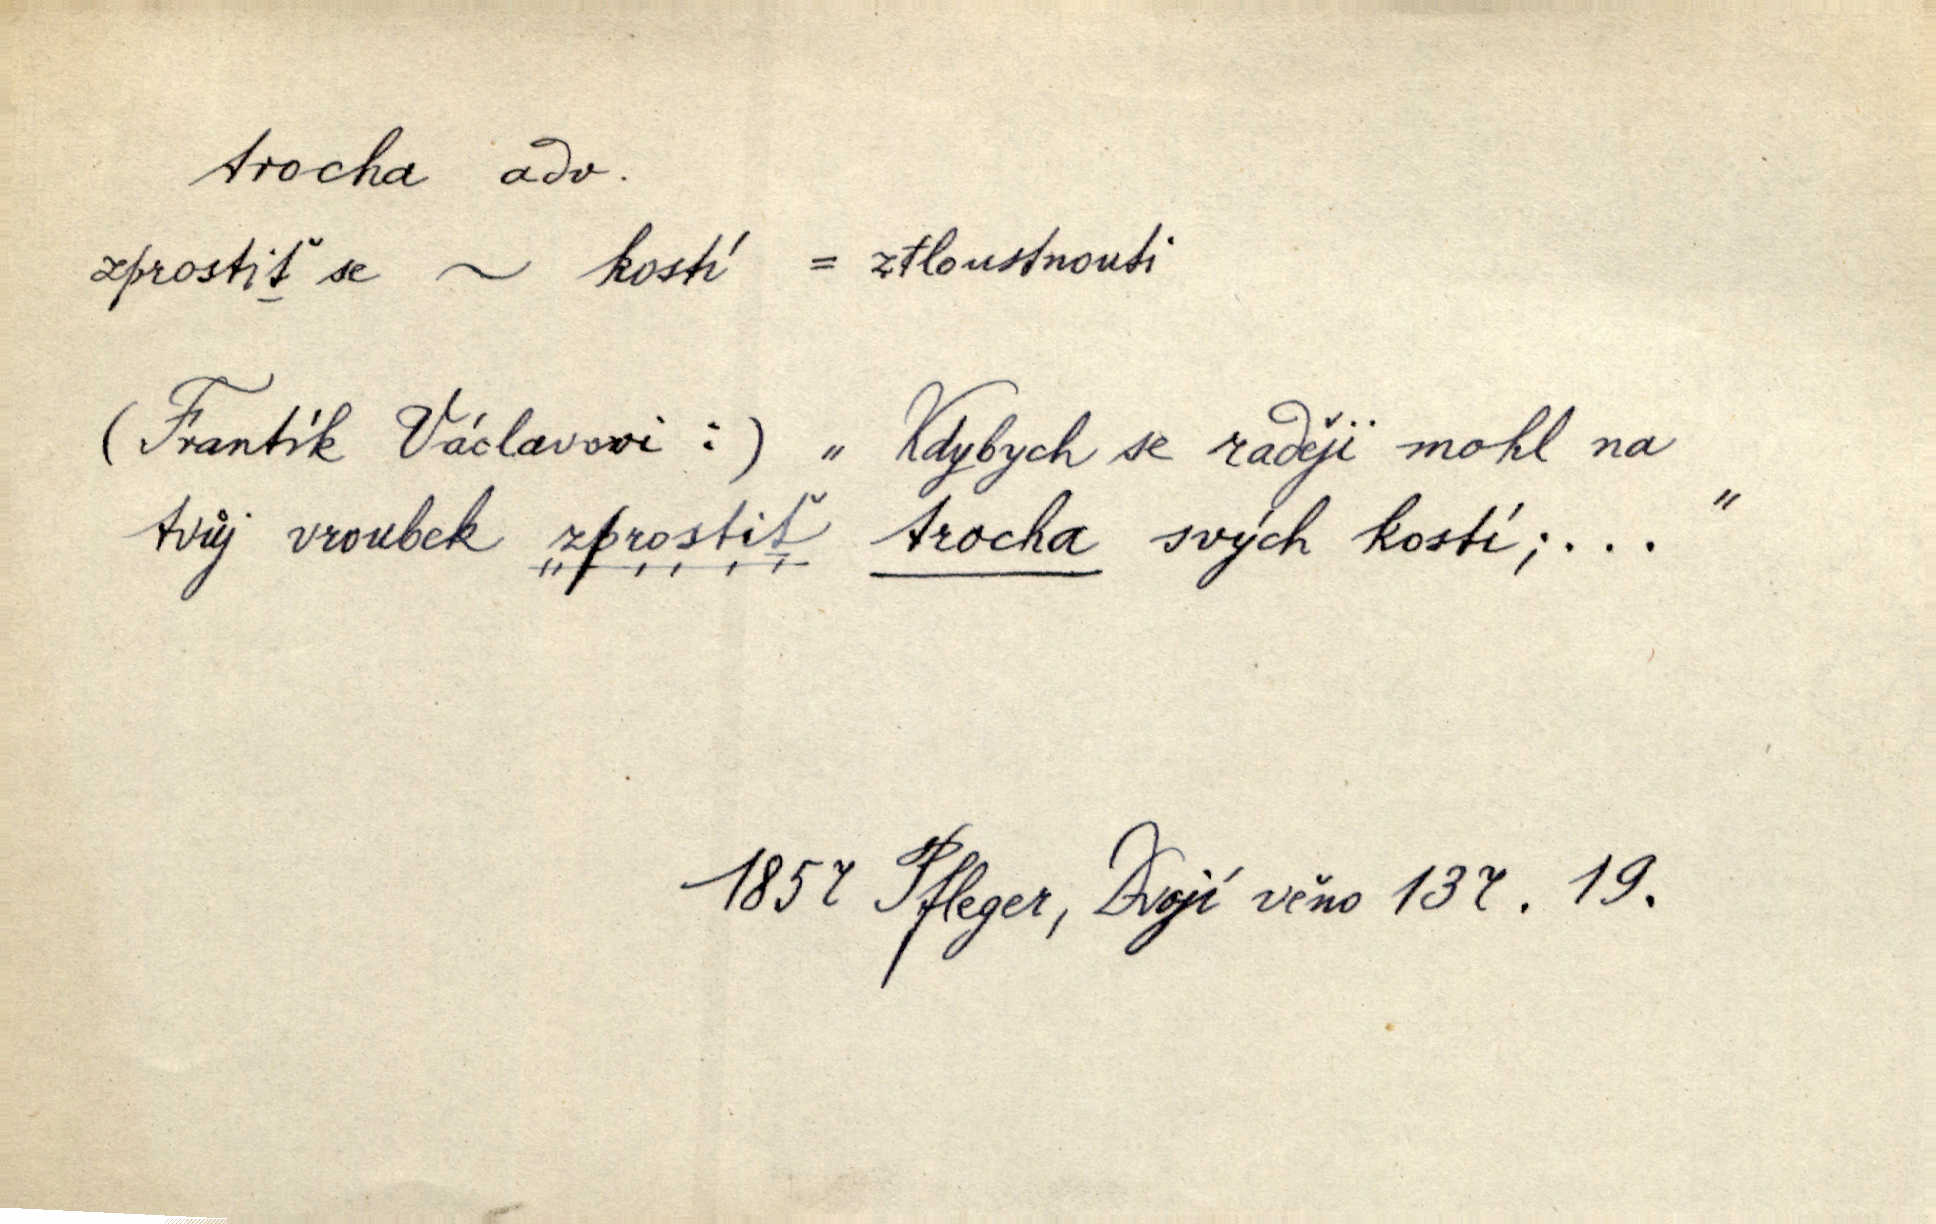 trocha adv.
zprostiť se ~ kostí = ztloustnouti
(Frantík Václavovi :) „Kdybych se raději mohl na
tvůj vroubek zprostiť trocha svých kostí; . . . "
1857 Pfleger, Dvojí věno 137. 19.